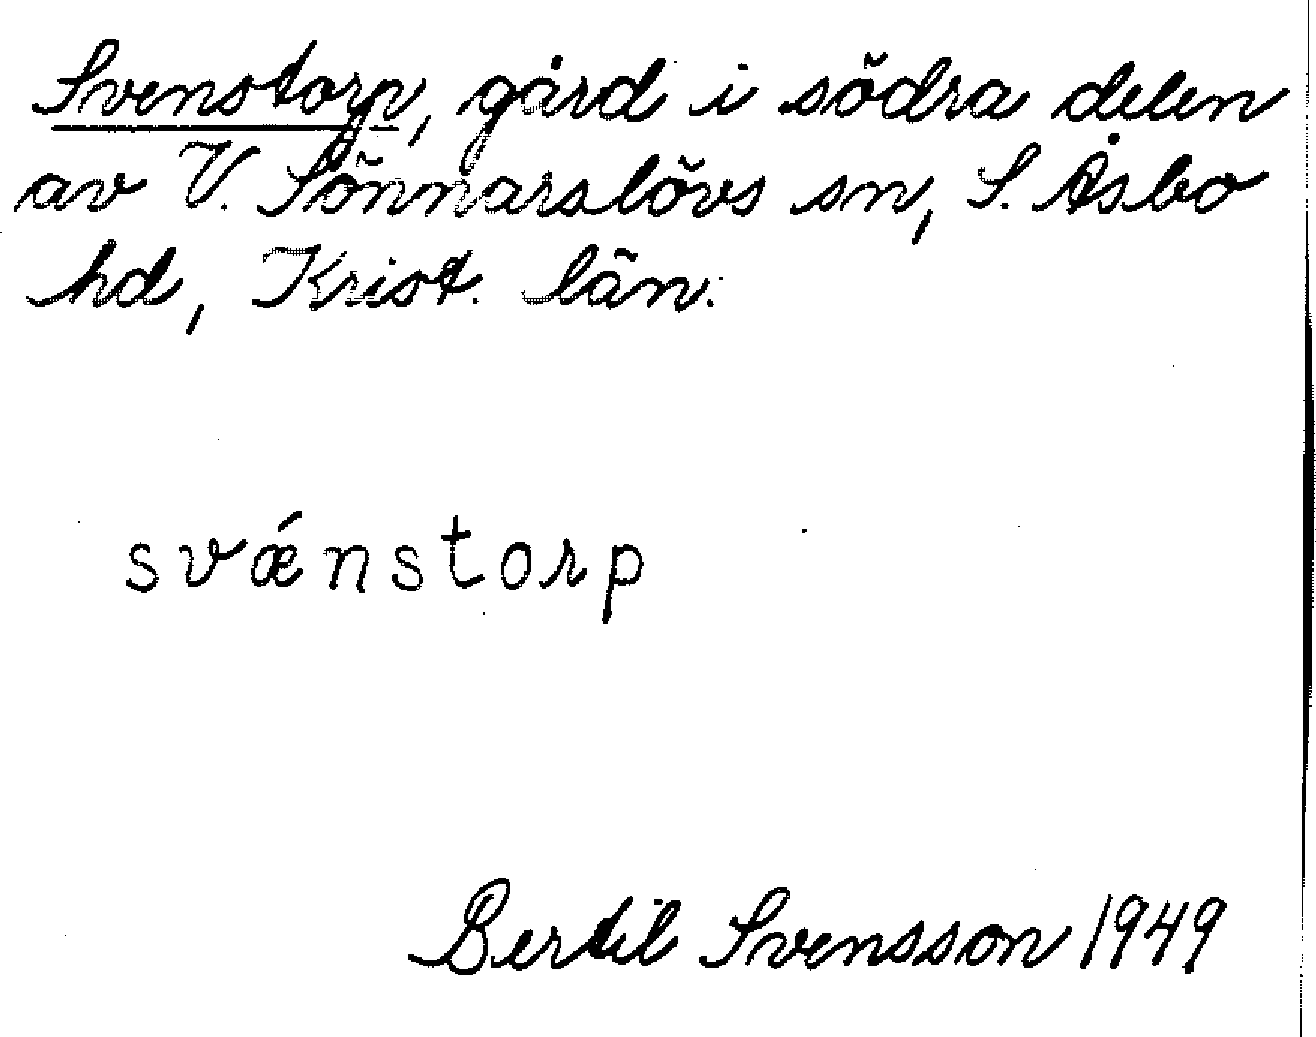 Svenstorp, gård i södra delen
av V. Sönnarslövs sn, S. Åsbo
hd, Krist. län.
svǽnstorp
Bertil Svensson 1949